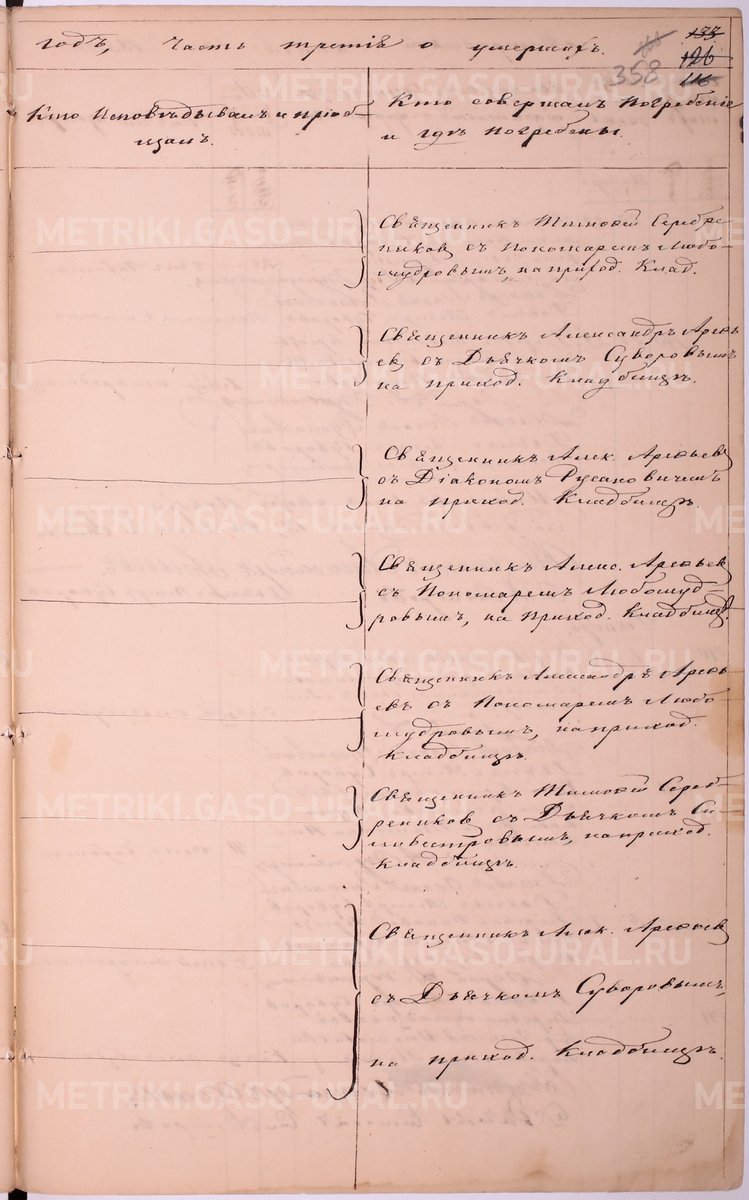 годъ, часть третія о умершихъ.
133
126
116
358
Кто исповѣдывалъ и пріоб-
щалъ.
Кто совершалъ погребеніе
и гдѣ погребены.
Священникъ Тимоѳей Серебре
никовъ съ Пономаремъ Любо-
мудровымъ, на приход. Клад.
Священникъ Александръ Арефь
евъ съ Дьячкомъ Суворовымъ
на приход. Кладбищѣ.
Священникъ Алек. Арефьевъ
съ Діакономъ Русановичемъ
на приход. Кладбищѣ.
Священникъ Алекс. Арефьевъ
съ Пономаремъ Любомуд-
ровымъ, на приход. Кладбищѣ.
Священникъ Александръ Арефь
евъ съ Пономаремъ Любо
мудровымъ, на приход.
кладбищѣ.
Священникъ Тимоѳей Сереб-
рениковъ съ Дьячкомъ Си
львестровымъ, на приход.
кладбищѣ.
Священникъ Алек. Арефьевъ
съ Дьячкомъ Суворовымъ,
на приход. Кладбищѣ.
METRIKI.GASO-URAL.RU